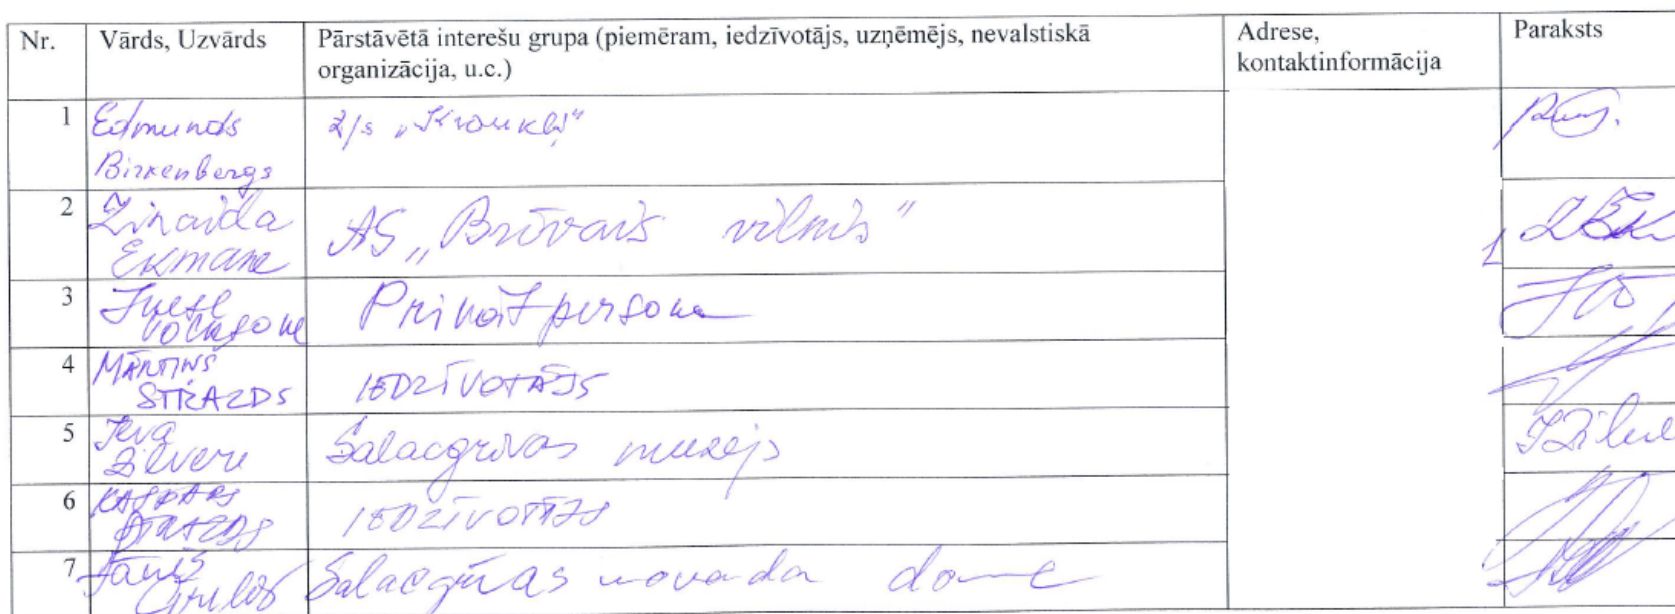 Nr. Vārds, Uzvārds Pārstāvētā interešu grupa (piemēram, iedzīvotājs, uzņēmējs, nevalstiskā organizācija, u.c.) Adrese, kontaktinformācija Paraksts
1 Edmunds
Birkenbergs
z/s
2 Zinaida
Ekmane
AS „Brīvais vilnis"
3
Privātpersona
4 MĀRTIŅŠ
STRAZDS
IEDZĪVOTĀJS
5 Ieva
Zilvere
Salacgrīvas muzejs
6 KASPARS
STRAZDS
IEDZĪVOTĀJS
7 Jānis
Cīrulis
Salacgrīvas novada dome